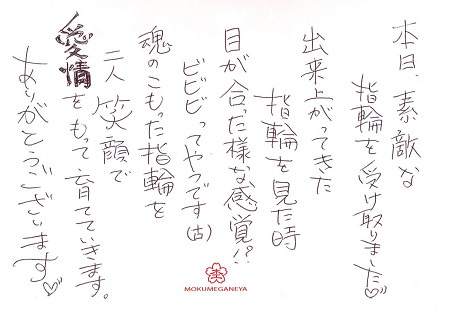 本日、素敵な
指輪を受け取りました♡
出来上がってきた
指輪を見た時
目が合った様な感覚!?
ビビビってやつです(古)
魂のこもった指輪を
二人笑顔で
愛情をもって育てていきます。
ありがとうございます♡
MOKUMEGANEYA